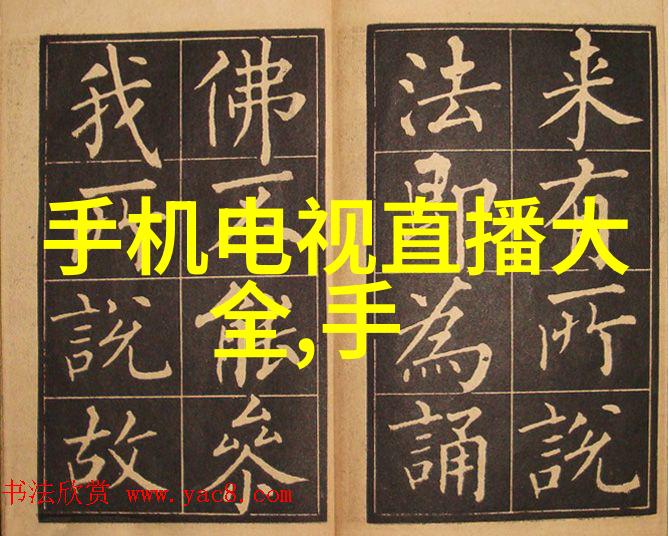 来有所說
法即為誦
佛不能叅
我所說故
手机电视直播大
全,手
书法欣赏 www.yac8.com